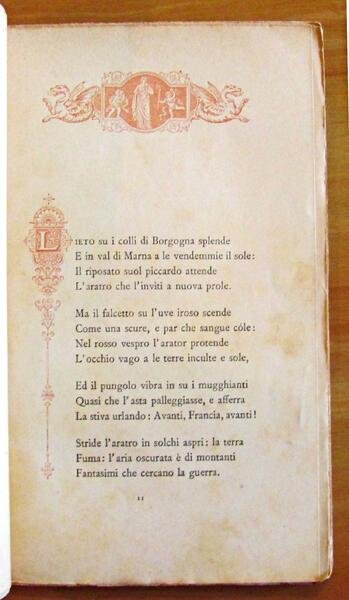 LIETO su i colli di Borgogna splende
E in val di Marna a le vendemmie il sole:
Il riposato suol piccardo attende
L'aratro che l'inviti a nuova prole.
Ma il falcetto su l'uve iroso scende
Come una scure, e par che sangue còle:
Nel rosso vespro l'arator protende
L'occhio vago a le terre inculte e sole,
Ed il pungolo vibra in su i mugghianti
Quasi che l'asta palleggiasse, e afferra
La stiva urlando: Avanti, Francia, avanti!
Stride l'aratro in solchi aspri: la terra
Fuma: l'aria oscurata è di montanti
Fantasimi che cercano la guerra.
II